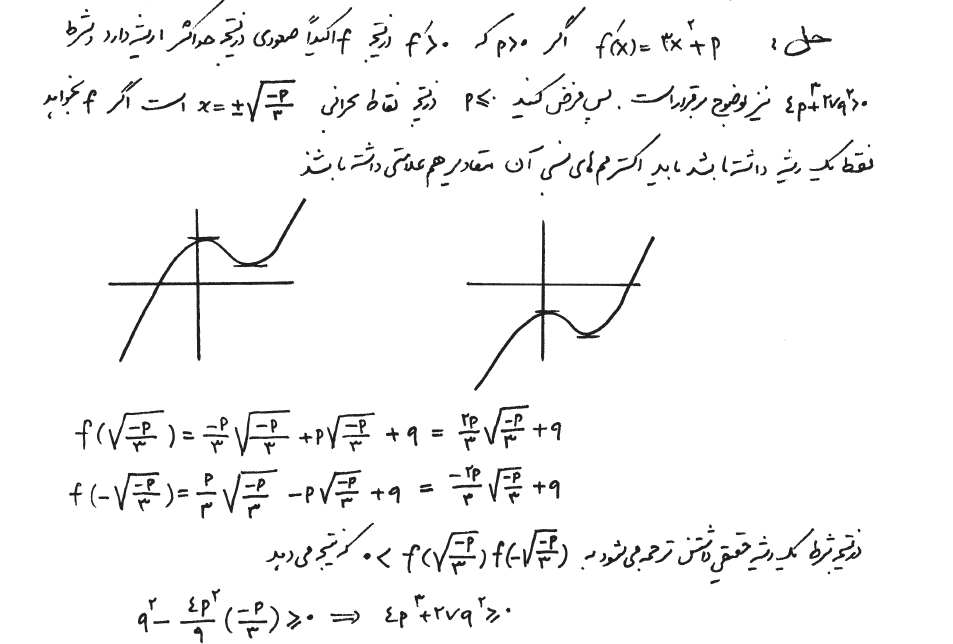 حل: f′(x) = ۳x^۲ + p اگر p>۰ که f′>۰ در نتیجه f اکیداً صعودی در نتیجه حداکثر ۱ ریشه دارد و شرط
۴p^۳+۲۷q^۲>۰ نیز بوضوح برقرار است. پس فرض کنید p≤۰ در نتیجه نقاط بحرانی x=±√(-p/۳) است اگر f بخواهد
فقط یک ریشه داشته باشد باید اکسترمم‌های نسبی آن مقادیر هم علامتی داشته باشند
f(√(-p/۳)) = -p/۳ √(-p/۳) + p√(-p/۳) + q = ۲p/۳ √(-p/۳) + q
f(-√(-p/۳)) = p/۳ √(-p/۳) - p√(-p/۳) + q = -۲p/۳ √(-p/۳) + q
در نتیجه شرط یک ریشه حقیقی داشتن ترجمه می‌شود به ۰ < f(√(-p/۳)) f(-√(-p/۳)) که نتیجه می‌دهد
q^۲ - ۴p^۲/۹ (-p/۳) ≥ ۰ ⟹ ۴p^۳+۲۷q^۲ ≥ ۰